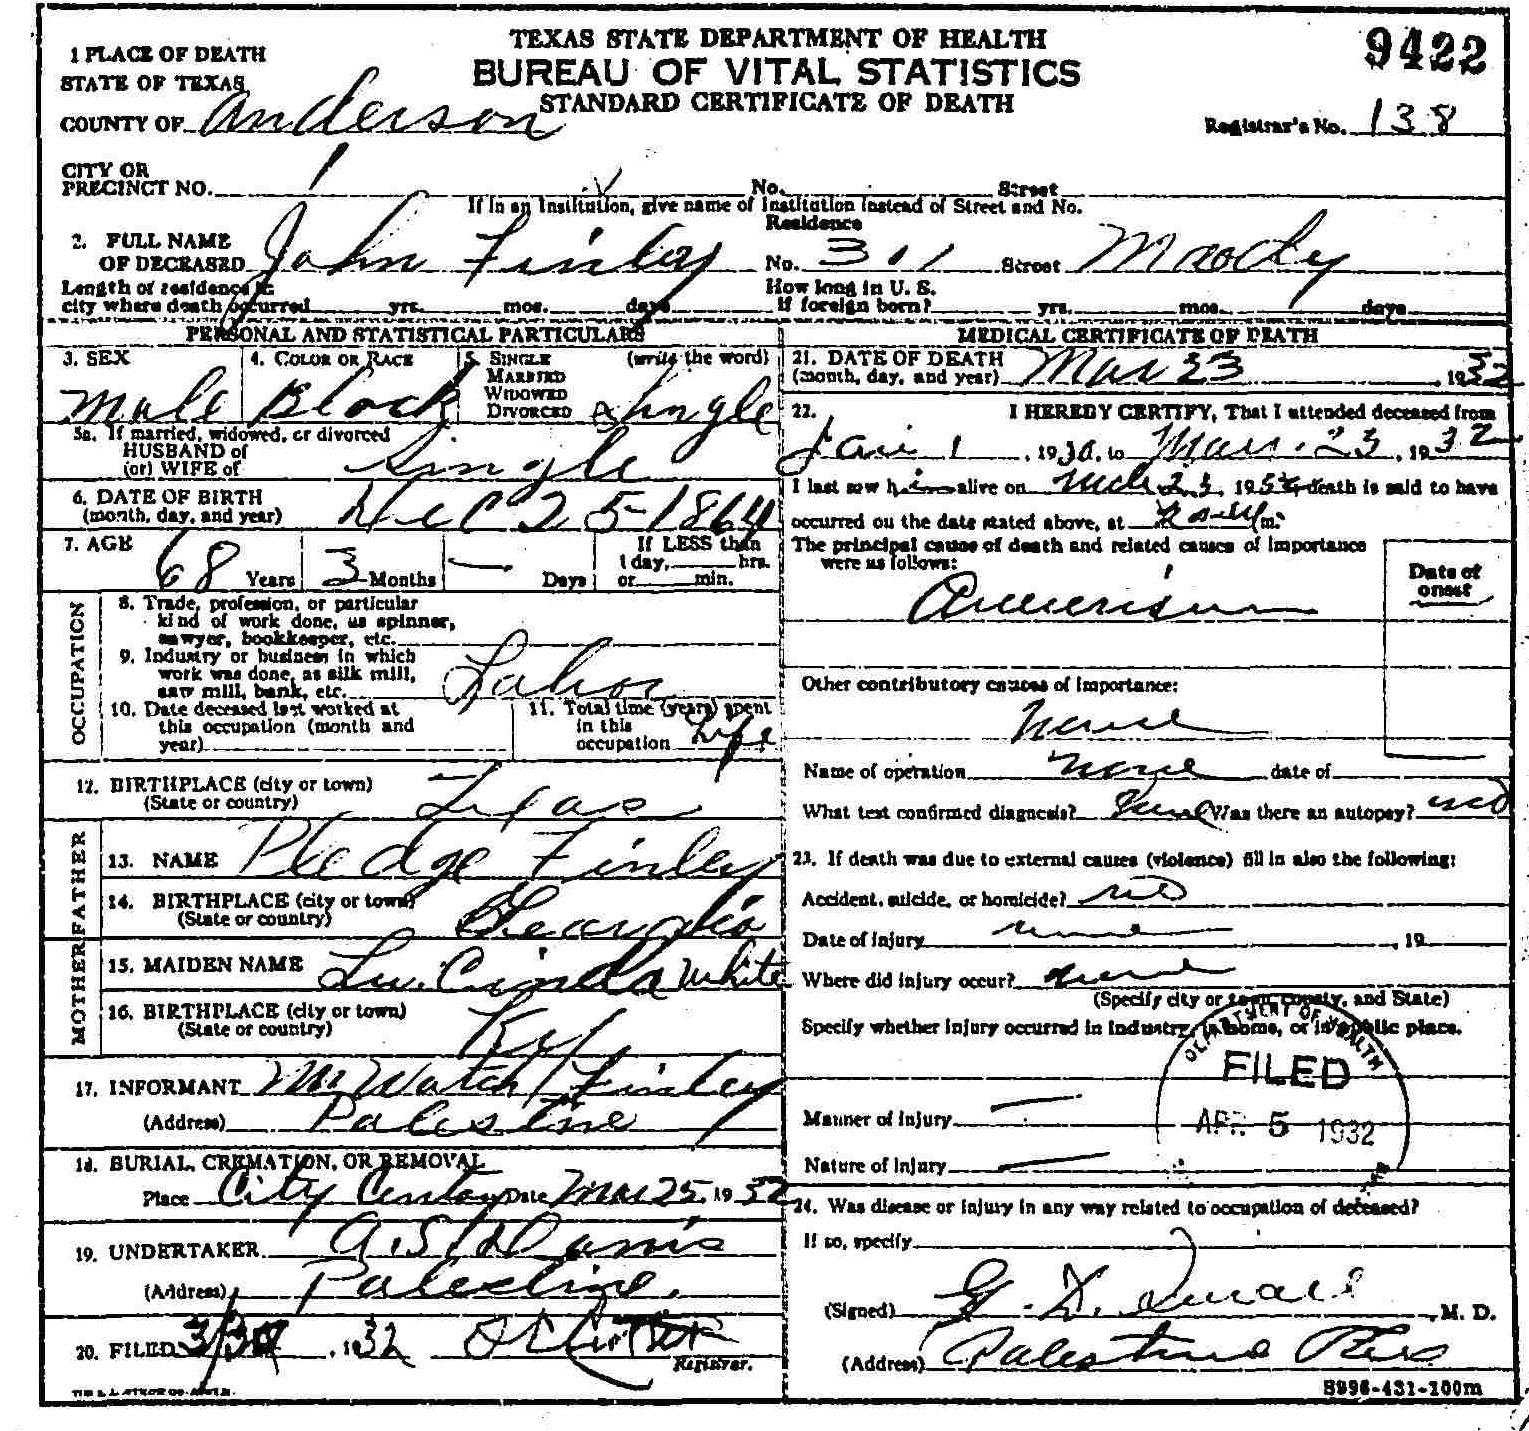 TEXAS STATE DEPARTMENT OF HEALTH
BUREAU OF VITAL STATISTICS
STANDARD CERTIFICATE OF DEATH
9422
1 PLACE OF DEATH
STATE OF TEXAS
COUNTY OF Anderson
Registrar's No. 138
CITY OR
PRECINCT NO. 1 No. Street
If in an Institution, give name of Institution instead of Street and No.
Residence
2. FULL NAME
OF DECEASED John Finley No. 301 Street Moody
Length of residence in
city where death occurred yrs. mos. days
How long in U. S.
if foreign born? yrs. mos. days
PERSONAL AND STATISTICAL PARTICULARS
3. SEX
Male
4. COLOR OR RACE
Black
5. SINGLE (write the word)
MARRIED
WIDOWED
DIVORCED Single
5a. If married, widowed, or divorced
HUSBAND of
(or) WIFE of Single
6. DATE OF BIRTH
(month, day, and year) Dec 25-1864
7. AGE 68 Years 3 Months — Days
If LESS than
1 day, hrs.
or min.
OCCUPATION
8. Trade, profession, or particular
kind of work done, as spinner,
sawyer, bookkeeper, etc.
9. Industry or business in which
work was done, as silk mill,
saw mill, bank, etc. Labor
10. Date deceased last worked at
this occupation (month and
year)
11. Total time (years) spent
in this
occupation Life
12. BIRTHPLACE (city or town)
(State or country) Texas
FATHER
13. NAME Pledge Finley
14. BIRTHPLACE (city or town)
(State or country) Georgia
MOTHER
15. MAIDEN NAME Lu. Cinda White
16. BIRTHPLACE (city or town)
(State or country) Ky
17. INFORMANT Mr Watch Finley
(Address) Palestine
18. BURIAL, CREMATION, OR REMOVAL
Place City Date Mar 25, 1932
19. UNDERTAKER A.S. Davis
(Address) Palestine.
20. FILED 1932
Registrar.
MEDICAL CERTIFICATE OF DEATH
21. DATE OF DEATH
(month, day, and year) Mar 23, 1932
22. I HEREBY CERTIFY, That I attended deceased from
Jan 1, 1930, to Mar. 23, 1932
I last saw him alive on Mch 23, 19 death is said to have
occurred on the date stated above, at m.
The principal cause of death and related causes of importance
were as follows:
Date of
onset
Other contributory causes of importance:
None
Name of operation None date of
What test confirmed diagnosis? Was there an autopsy? no
23. If death was due to external causes (violence) fill in also the following:
Accident, suicide, or homicide? no
Date of injury none, 19
Where did injury occur? none
(Specify city or town, county, and State)
Specify whether injury occurred in industry, in home, or in public place.
DEPARTMENT OF HEALTH
FILED
APR 5 1932
Manner of injury —
Nature of injury —
24. Was disease or injury in any way related to occupation of deceased?
If so, specify
(Signed) G. M. D.
(Address) Palestine
S996-431-100m